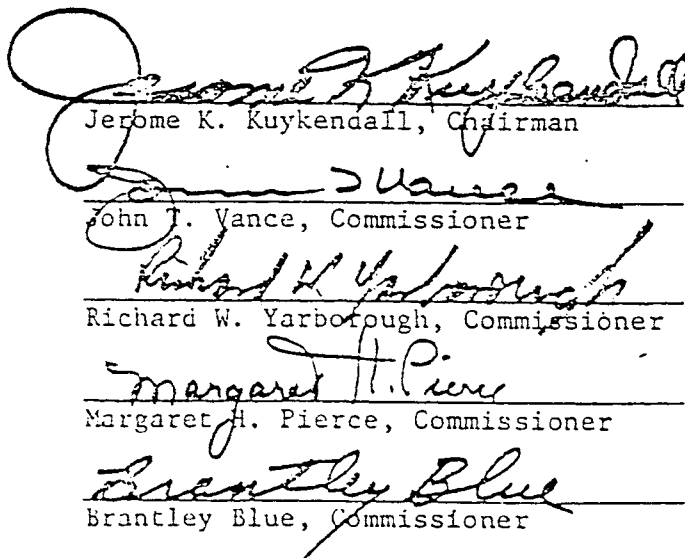 Jerome K Kuykendall
Jerome K. Kuykendall, Chairman
John T Vance
John T. Vance, Commissioner
Richard W Yarborough
Richard W. Yarborough, Commissioner
Margaret H. Pierce
Margaret H. Pierce, Commissioner
Brantley Blue
Brantley Blue, Commissioner